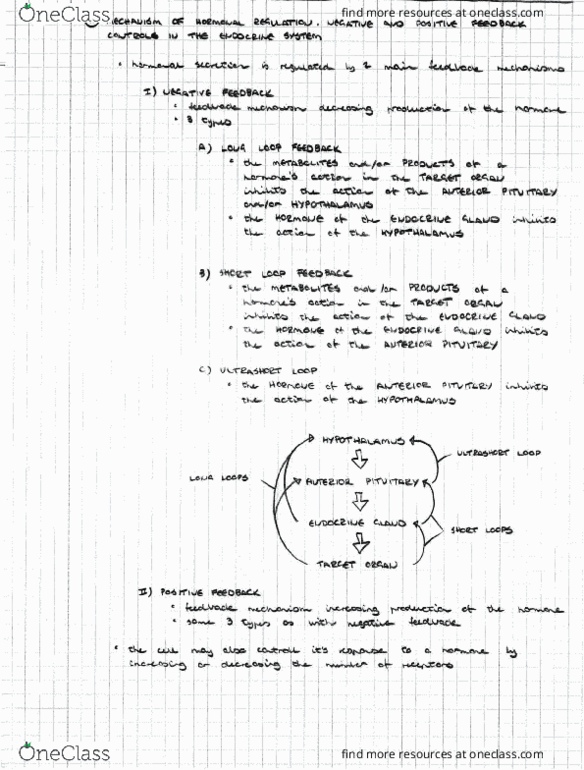 OneClass
find more resources at oneclass.com
MECHANISM OF HORMONAL REGULATION. NEGATIVE AND POSITIVE FEEDBACK
CONTROLS IN THE ENDOCRINE SYSTEM
• hormonal secretion is regulated by 2 main feedback mechanisms
I) NEGATIVE FEEDBACK
• feedback mechanism decreasing production of the hormone
• 3 types
A) LONG LOOP FEEDBACK
• the METABOLITES and/or PRODUCTS of a
hormone's action in the TARGET ORGAN
inhibits the action of the ANTERIOR PITUITARY
and/or HYPOTHALAMUS
• the HORMONE of the ENDOCRINE GLAND inhibits
the action of the HYPOTHALAMUS
B) SHORT LOOP FEEDBACK
• the METABOLITES and/or PRODUCTS of a
hormone's action in the TARGET ORGAN
inhibits the action of the ENDOCRINE GLAND
• the HORMONE of the ENDOCRINE GLAND inhibits
the action of the ANTERIOR PITUITARY
C) ULTRASHORT LOOP
• the HORMONE of the ANTERIOR PITUITARY inhibits
the action of the HYPOTHALAMUS
HYPOTHALAMUS
ULTRASHORT LOOP
LONG LOOPS
ANTERIOR PITUITARY
ENDOCRINE GLAND
SHORT LOOPS
TARGET ORGAN
II) POSITIVE FEEDBACK
• feedback mechanism increasing production of the hormone
• same 3 types as with negative feedback
• the cell may also controll it's response to a hormone by
increasing or decreasing the number of receptors
OneClass
find more resources at oneclass.com